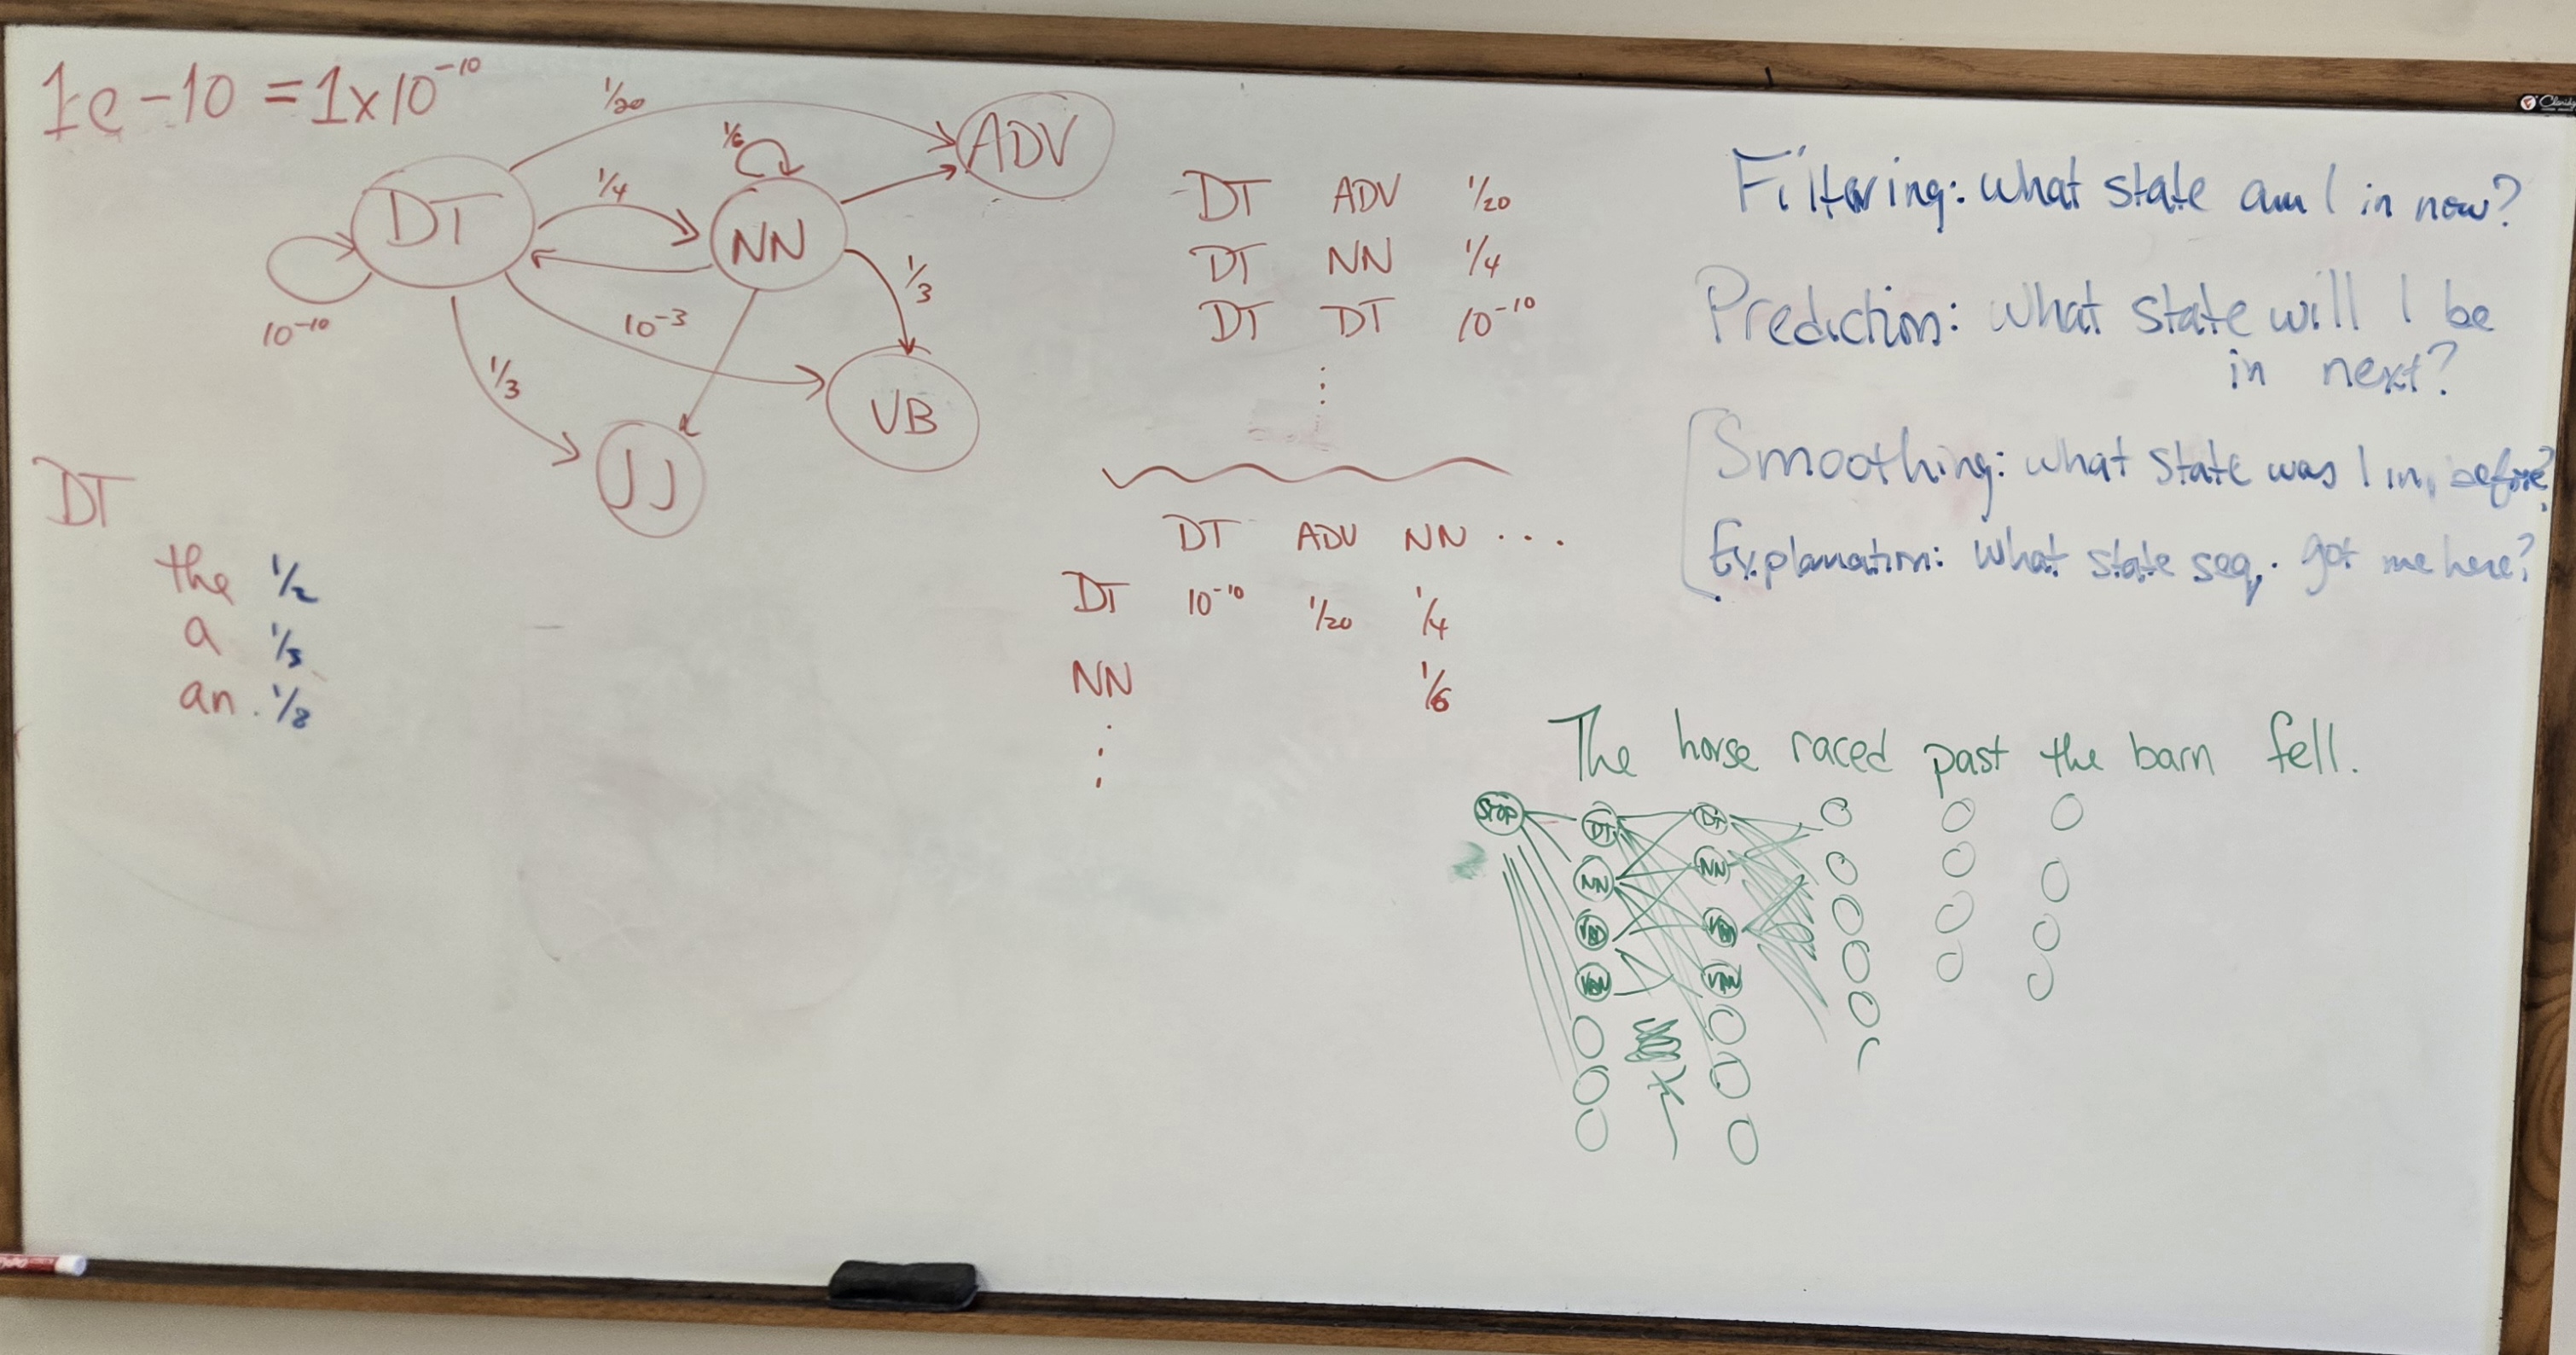 1e-10 = 1x10^-10
1/20
ADV
1/6
1/4
DT
NN
10^-10
10^-3
1/3
1/3
VB
JJ
DT
the 1/2
a
an 1/8
DT ADV 1/20
DT NN 1/4
DT DT 10^-10
⋮
DT ADV NN ...
DT 10^-10 1/20 1/4
NN 1/6
⋮
Filtering: what state am I in now?
Prediction: what state will I be
in next?
Smoothing: what state was I in before?
Explanation: what state seq. got me here?
The horse raced past the barn fell.
STOP DT DT
NN NN